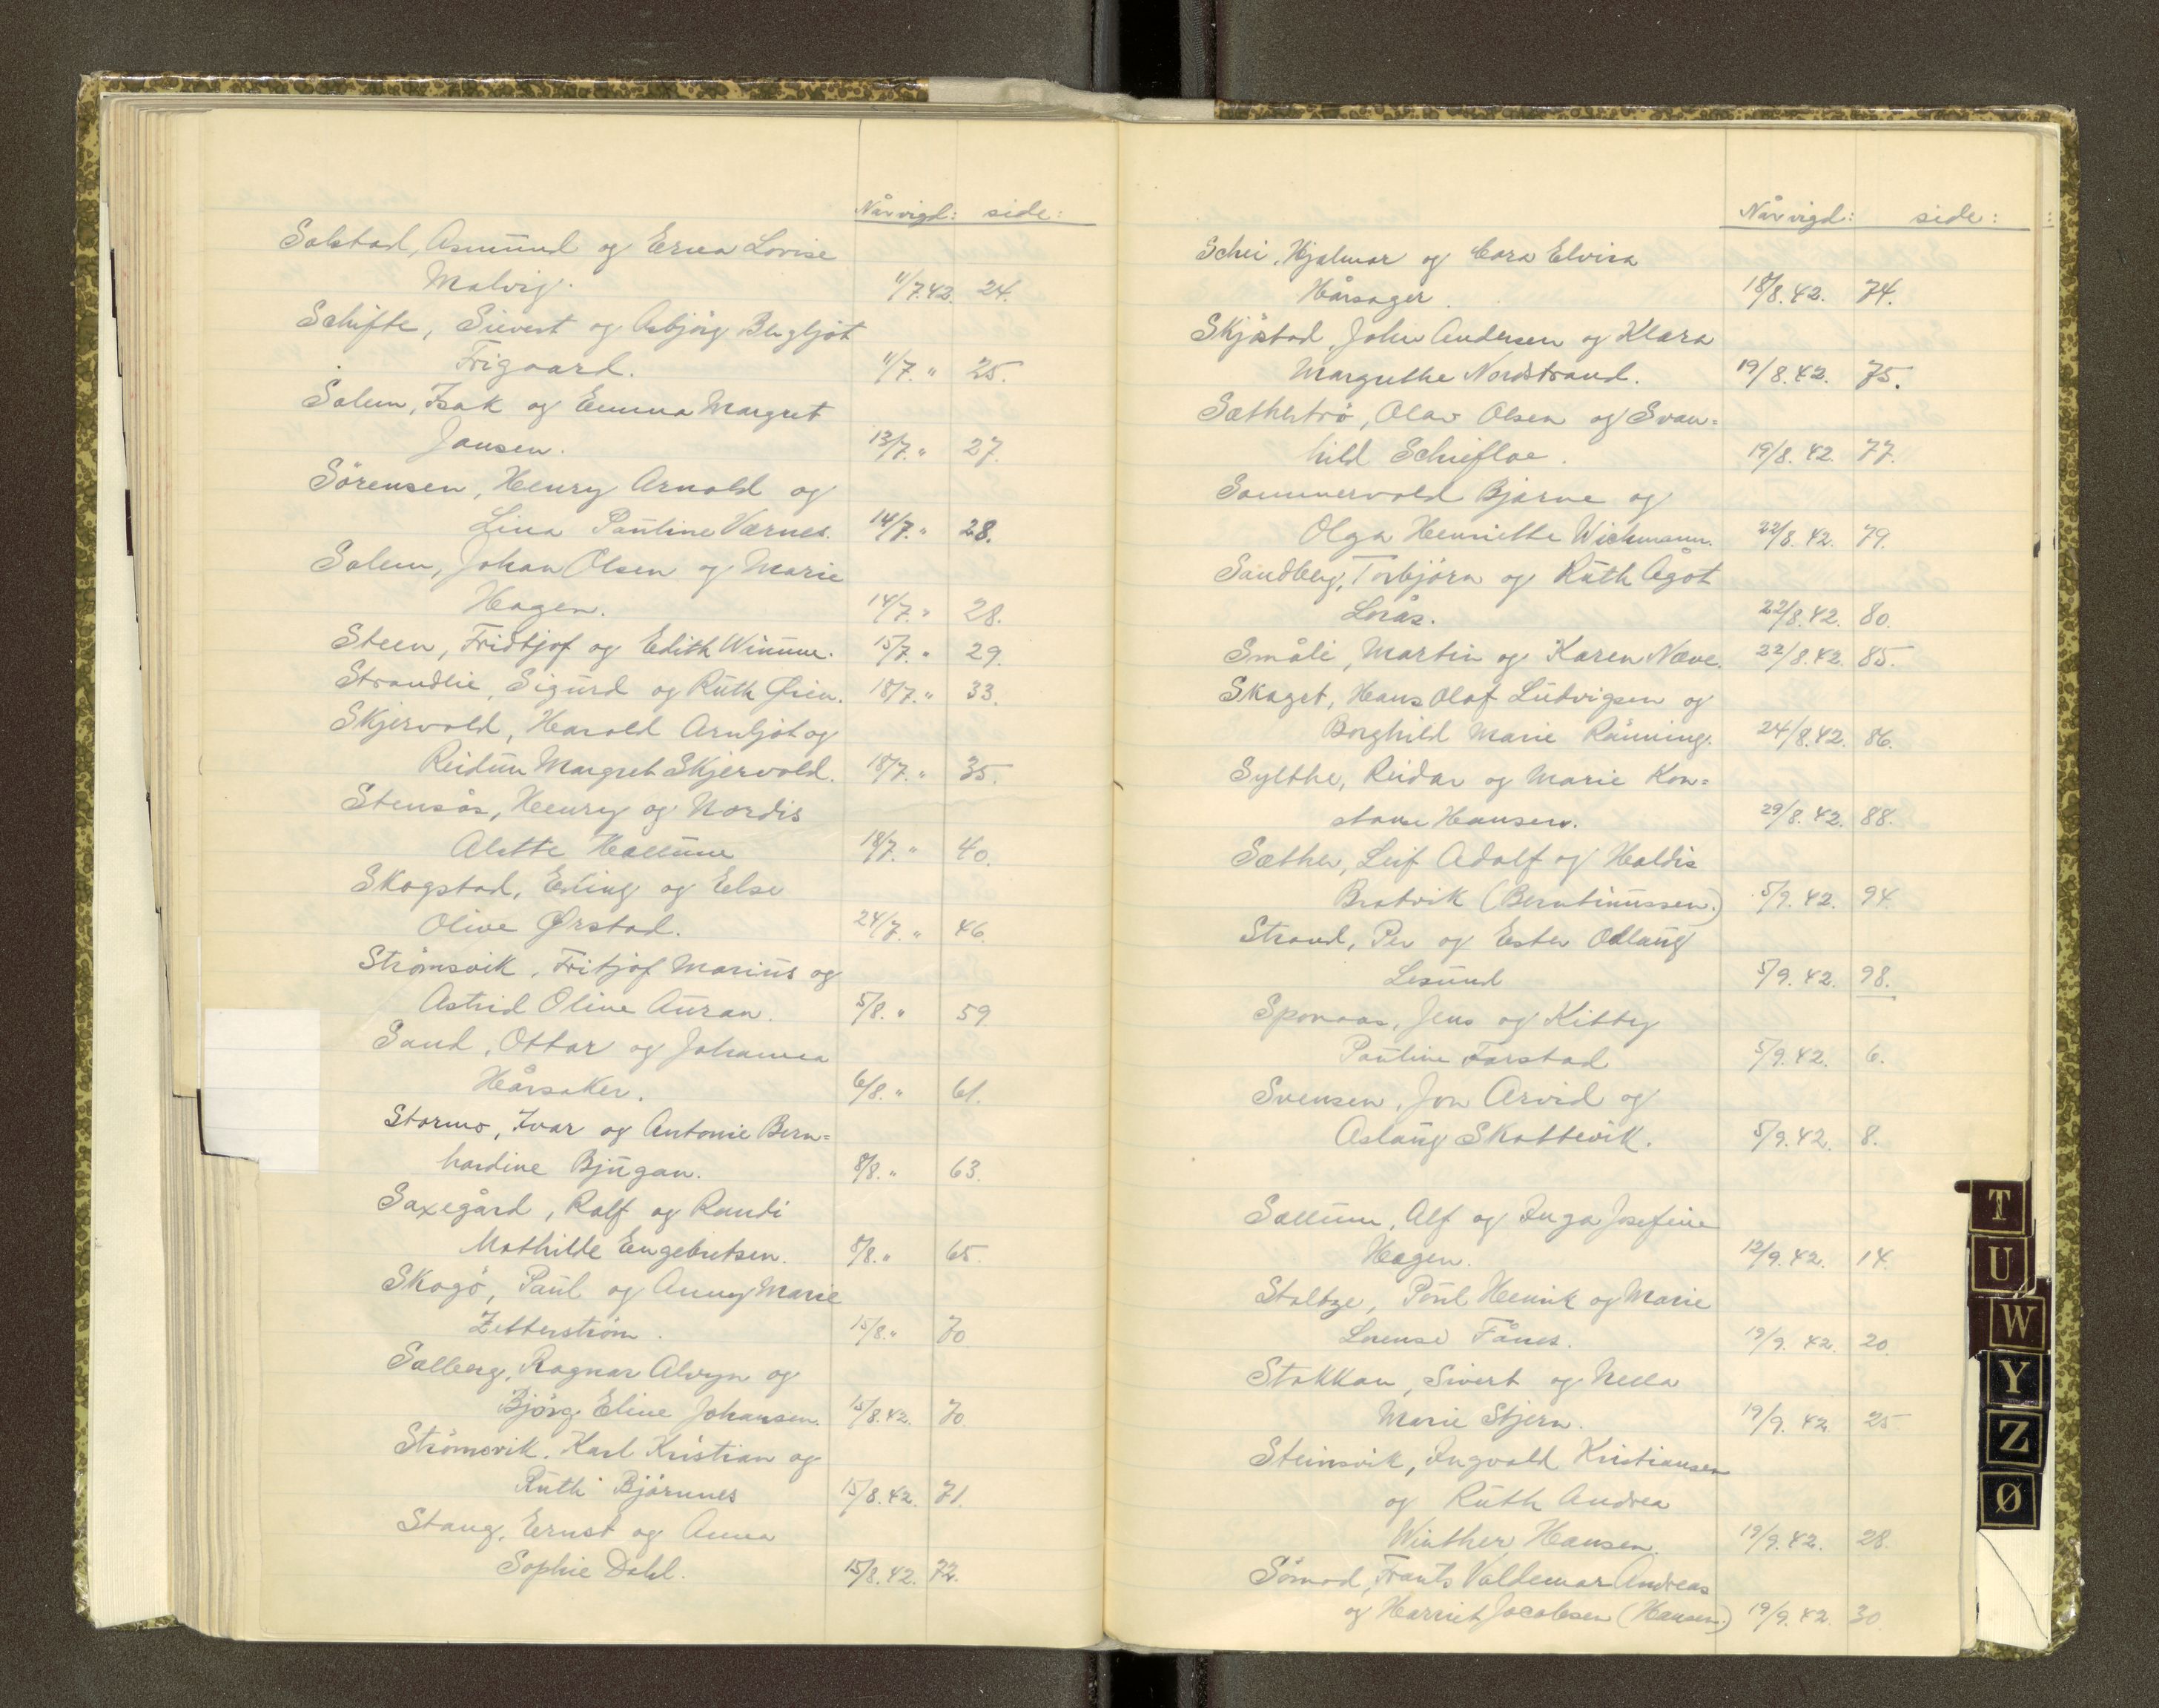 Når vigd: side:
Solstad, Asmund og Erna Lovise
Malvig. 11/7.42. 24.
Schifte, Sievert og Asbjörg Bergljot
Frigaard. 11/7. " 25.
Solem, Isak og Emma Margret
Jansen. 13/7. " 27.
Sörensen, Henry Arnold og
Lina Pauline Værnes. 14/7. " 28.
Solem, Johan Olsen og Marie
Hagen. 14/7. " 28.
Steen, Fridtjof og Edith Winum. 15/7. " 29.
Strandlie, Sigurd og Ruth Øien. 18/7. " 33.
Skjervold, Harald Arnljot og
Reidun Margret Skjervold. 18/7. " 35.
Stensås, Henry og Nordis
Alette Hallum 18/7. " 40.
Skogstad, Erling og Else
Olive Ørstad. 24/7. " 46.
Strömsvik, Fritjof Marius og
Astrid Oline Auran. 5/8. " 59
Sand, Ottar og Johanna
Hårsaker. 6/8. " 61.
Stormo, Ivar og Antonie Bern=
hardine Bjugan. 8/8. " 63.
Saxegård, Rolf og Randi
Mathilde Engebretsen. 8/8. " 65.
Skogö, Paul og Anny Marie
Zetterström. 15/8. " 70
Solberg, Ragnar Alvyn og
Björg Eline Johansen. 15/8.42. 70.
Strömsvik, Karl Kristian og
Ruth Björnnes 15/8.42. 71.
Stang, Ernst og Anna
Sophie Dahl. 15/8.42. 72.
Når vigd: side:
Schei, Hjalmar og Cora Elvira
Hårsager. 18/8.42. 74.
Skjöstad, John Andersen og Klara
Margrethe Nordstrand. 19/8.42. 75.
Sætherö, Olav Olsen og Svan=
hild Schiefloe. 19/8.42. 77.
Sommervold Bjarne og
Olga Henriette Wichmann. 22/8.42. 79.
Sandberg, Torbjörn og Ruth Ågot
Lorås. 22/8.42. 80.
Småli, Martin og Karen Næve. 22/8.42. 85.
Skaget, Hans Olaf Ludvigsen og
Borghild Marie Rånning. 24/8.42. 86.
Sylthe, Reidar og Marie Kon=
stanse Hansen. 29/8.42. 88.
Sæther, Leif Adolf og Haldis
Bratvik (Berntinussen.) 5/9.42. 94.
Strand, Per og Ester Odlaug
Lesund 5/9.42. 98.
Sponaas, Jens og Kitty
Pauline Farstad 5/9.42. 6.
Svensen, Jon Arvid og
Aslaug Skottevik. 5/9.42. 8.
Sællum, Alf og Inga Josefine
Hagen. 12/9.42. 14.
Stoltze, Poul Henrik og Marie
Lorense Fånes. 19/9.42. 20.
Stokkan, Sivert og Nella
Marie Stjern. 19/9.42. 25.
Steinsvik, Ingvald Kristiansen
og Ruth Andrea
Winther Hansen. 19/9.42. 28.
Sömod, Frants Valdemar Andreas
og Harriet Jacobsen (Hansen.) 19/9.42. 30.
T
U
W
Y
Z
Ø